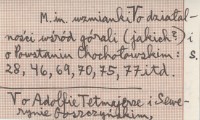 M. in. wzmianki o działal-
ności wśród górali (jakich?) i
o Powstaniu Chochołowskim: S.
28, 46, 69, 70, 75, 77 itd.
V o Adolfie Tetmajerze i Sewe-
rynie Goszczyńskim.